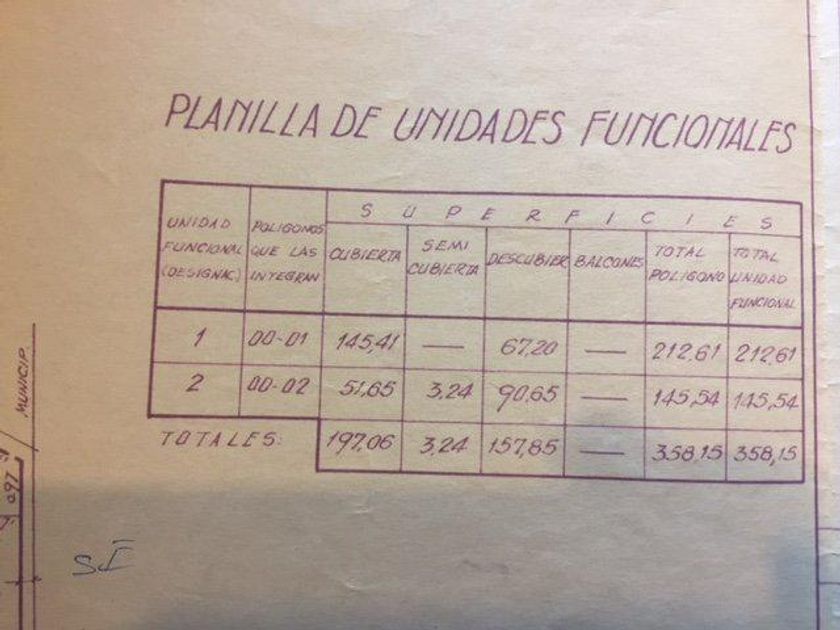 PLANILLA DE UNIDADES FUNCIONALES
SUPERFICIES
UNIDAD FUNCIONAL (DESIGNAC.) POLIGONOS QUE LAS INTEGRAN CUBIERTA SEMI CUBIERTA DESCUBIER BALCONES TOTAL POLIGONO TOTAL UNIDAD FUNCIONAL
1 00-01 145,41 — 67,20 — 212,61 212,61
2 00-02 51,65 3,24 90,65 — 145,54 145,54
TOTALES: 197,06 3,24 157,85 — 358,15 358,15
MUNICIP.
SI